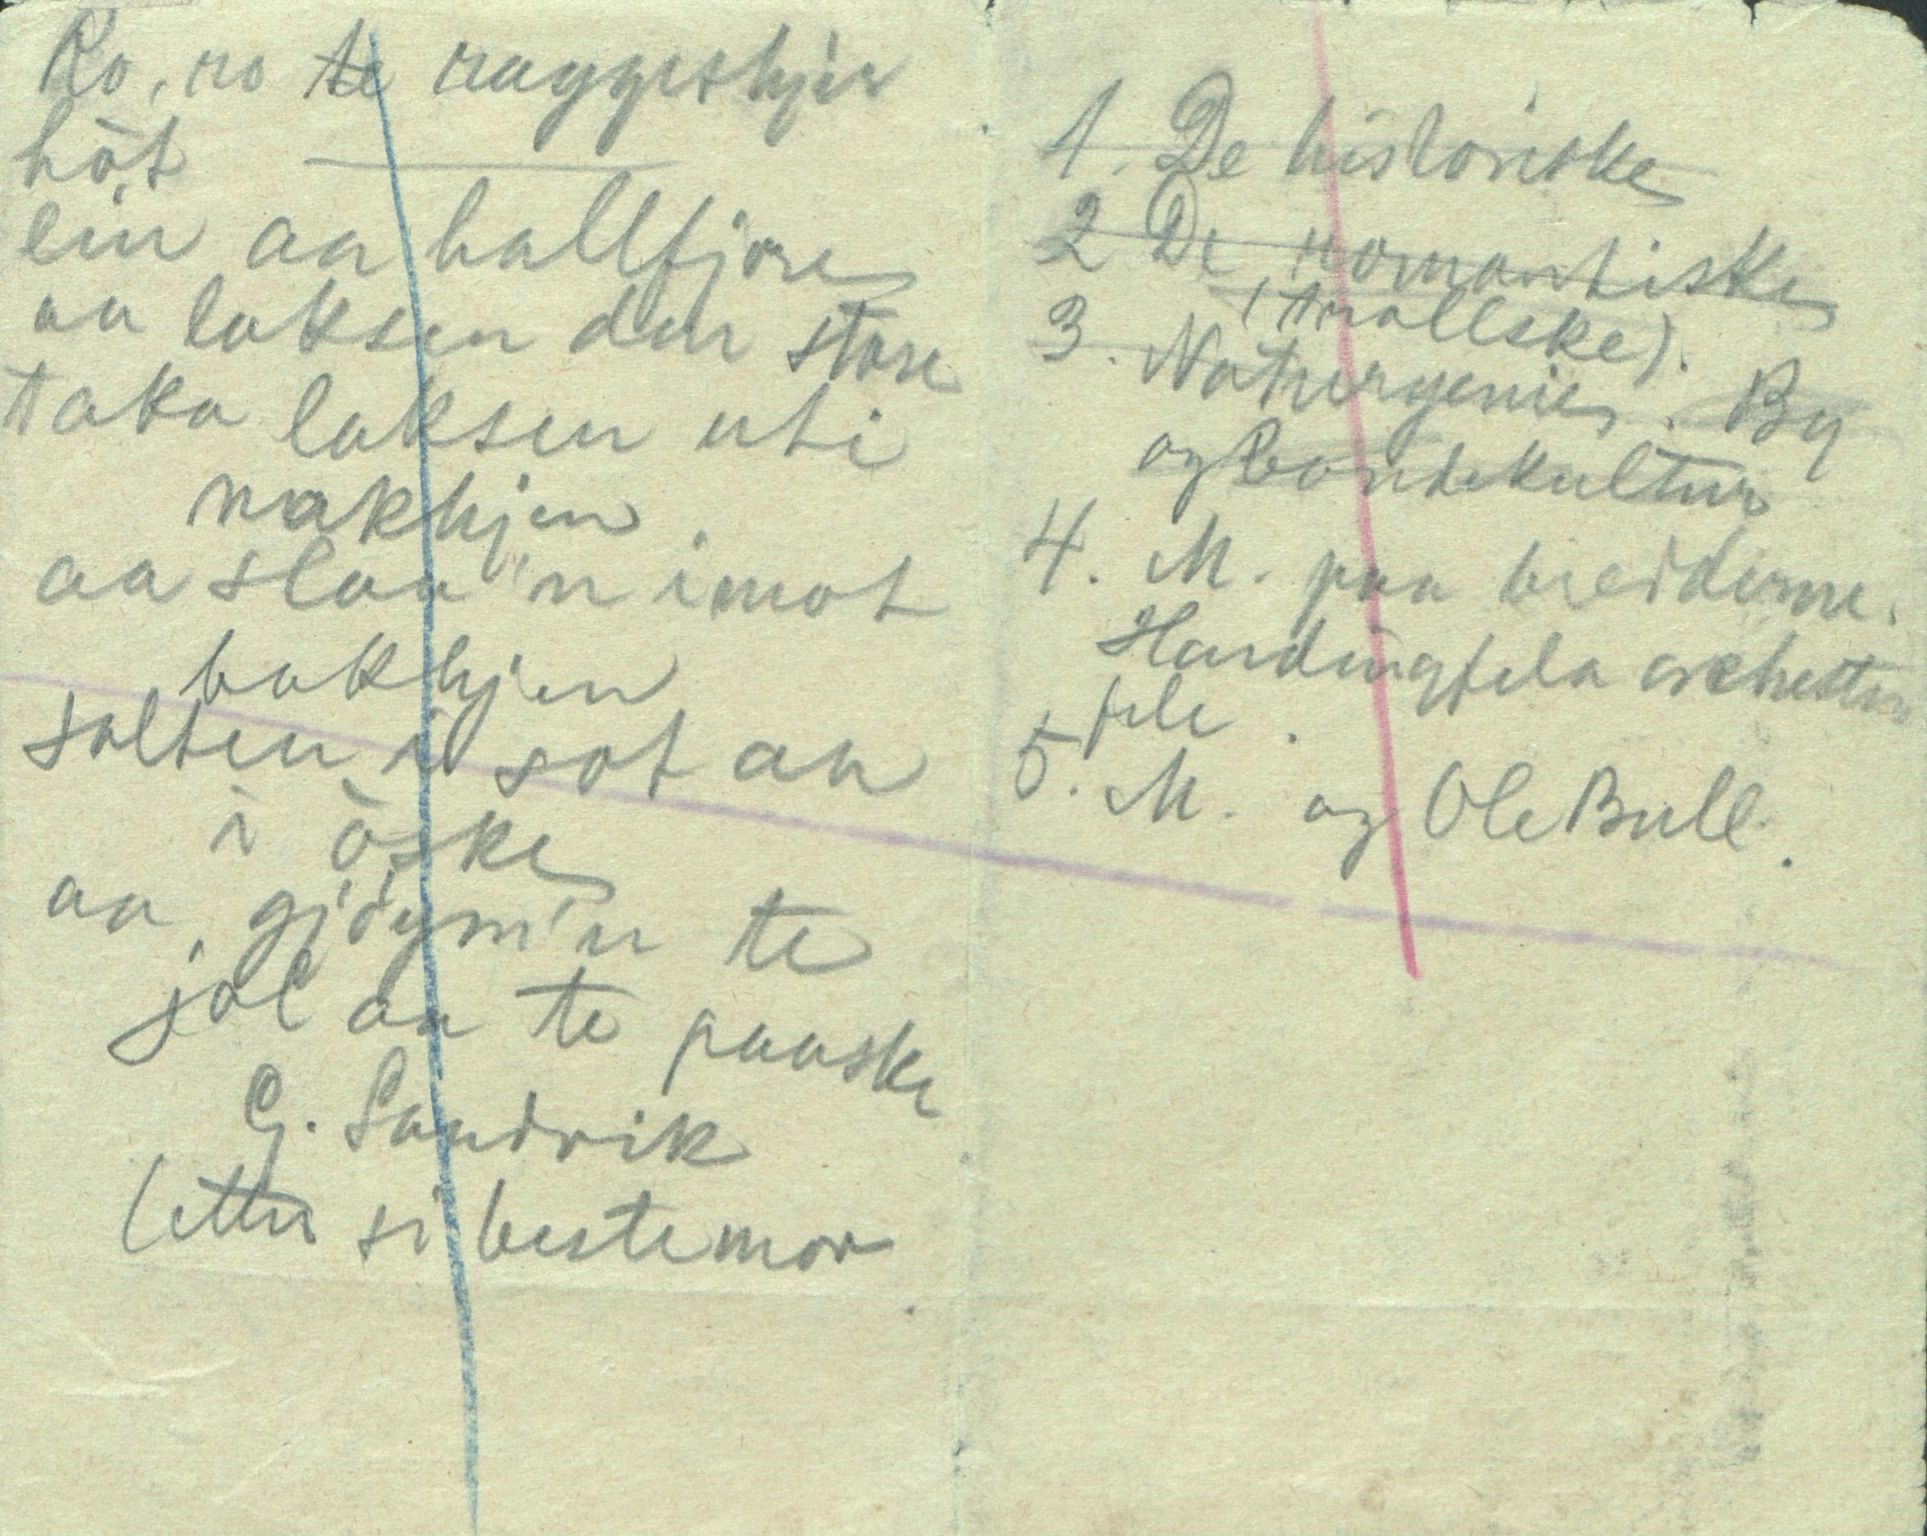 Ro, ro te raggeskjer
höt
ein aa hallfjore
aa laksen den store
Taka laksen uti
nakkjen.
aa slaa'n imot
bakkjen
salten i sot aa
i öske
aa gjöym'n te
jol aa te paaske
G. Sandvik
(etter si bestemor
1. De historiske
2 De romantiske
(trollske).
3. Naturgenier. By
og bondekultur
4. M. paa bredderne.
Hardingfela orchester
fele.
5. M. og Ole Bull.